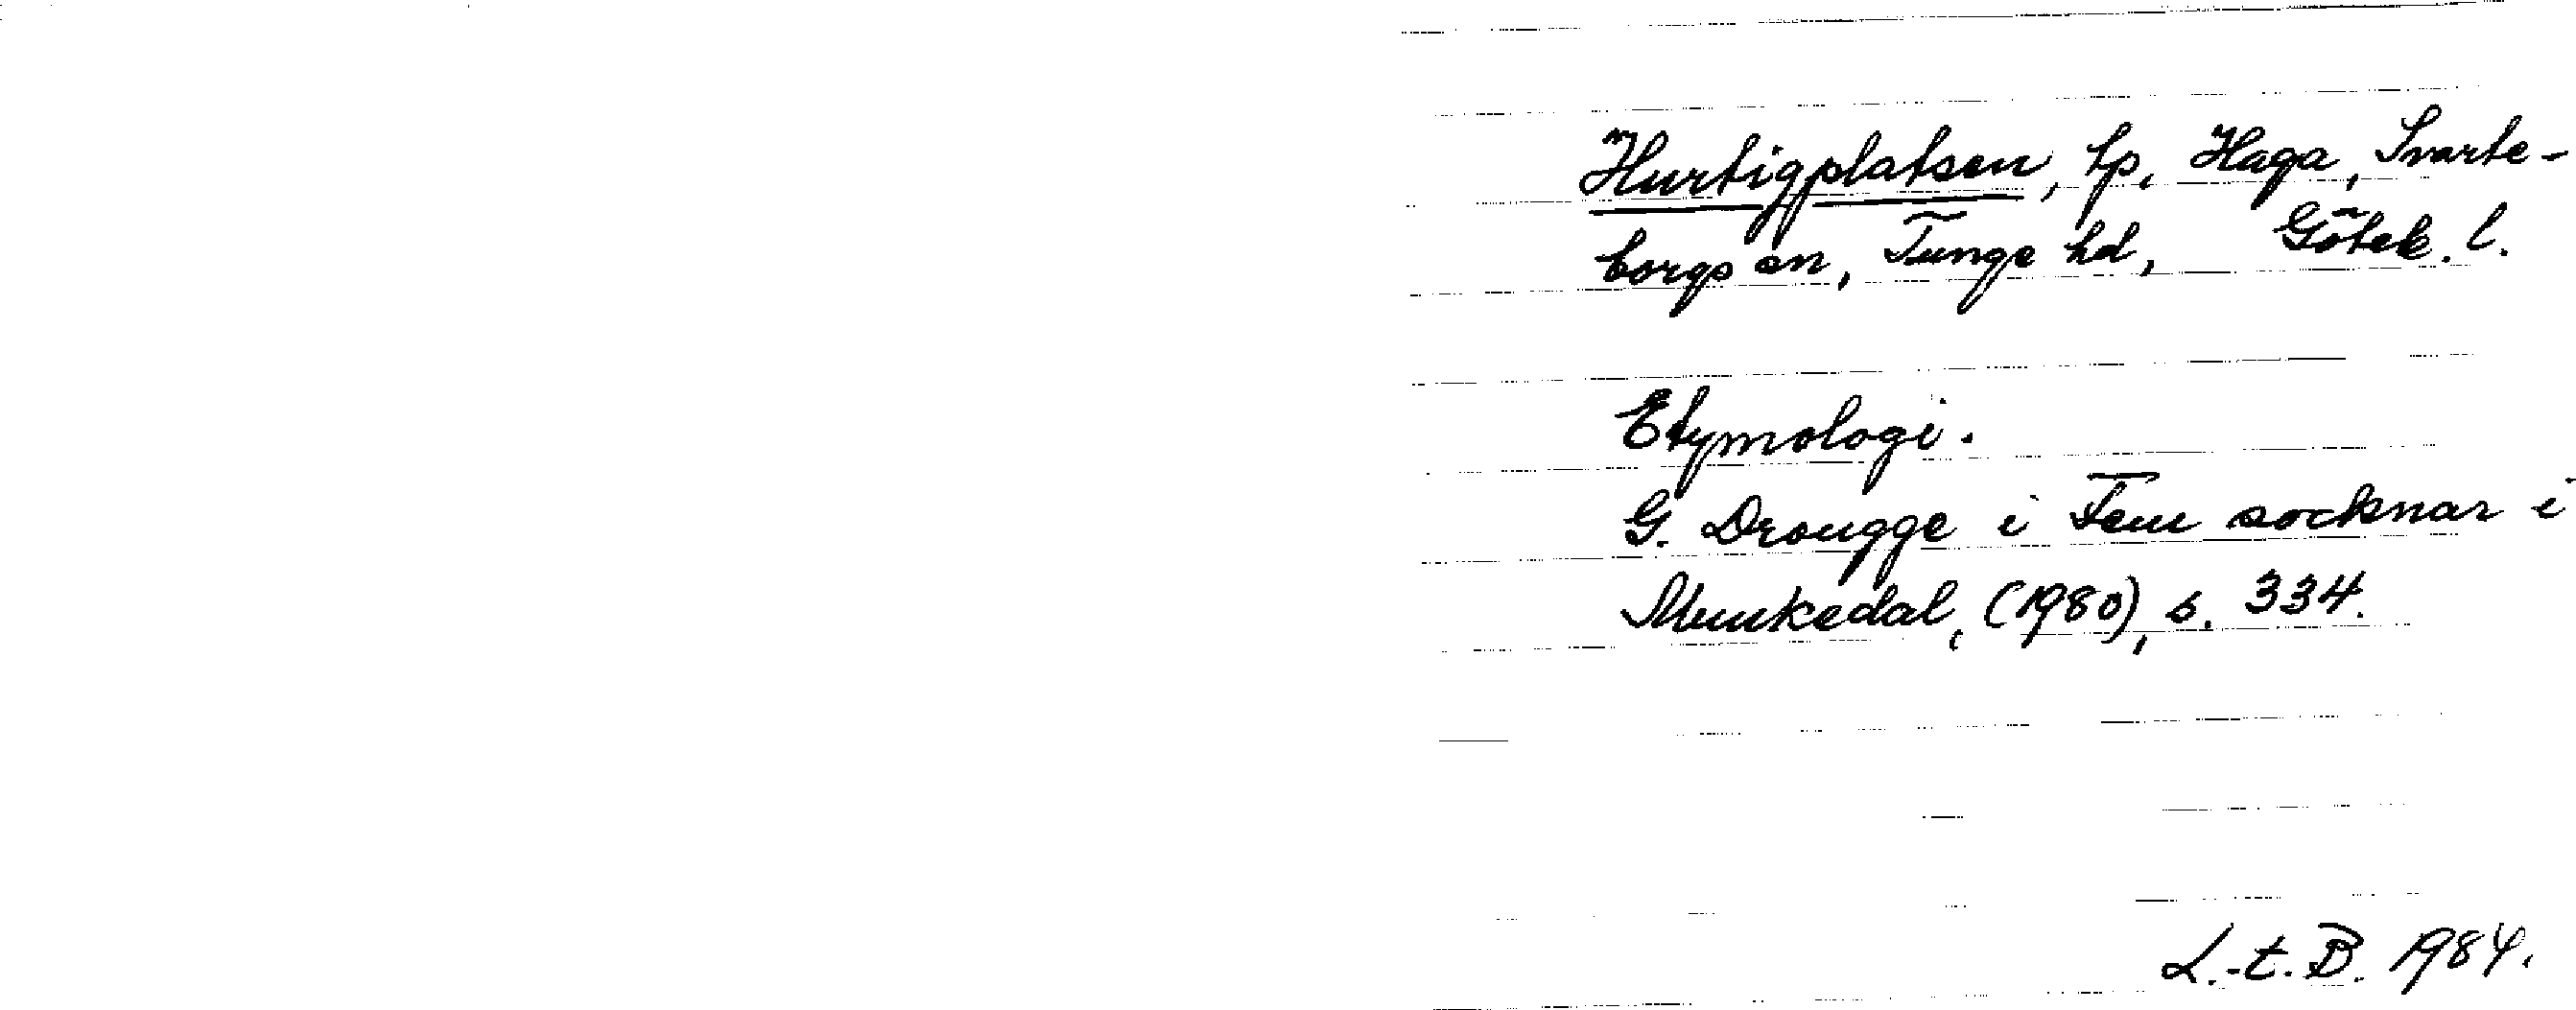 Hurtigplatsen, tp, Haga, Svarte-
borgs sn, Tunge hd, Göteb. l.
Etymologi.
G. Drougge i Fem socknar i
Munkedal, (1980), s. 334.
L.-t. B. 1984.